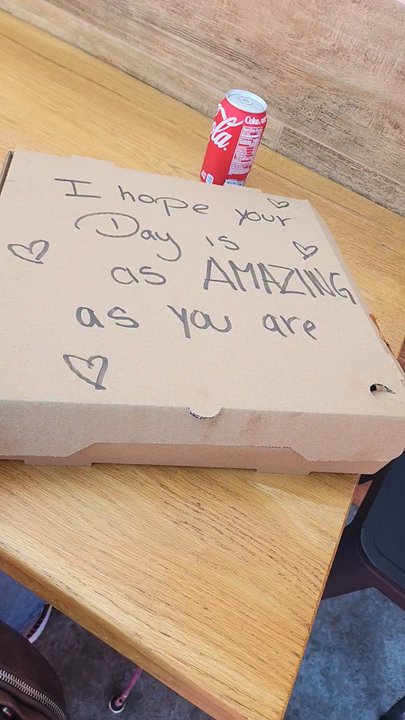 Coke
Cola
I hope your
Day is
as AMAZING
as you are